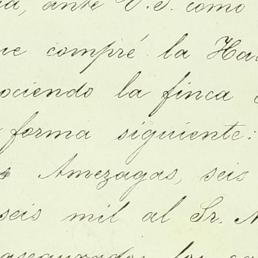 ante V.S. como
compré la Ha
ociendo la finca
forma siguiente:
Amezagas, seis
seis mil al Sr.
asegurados los